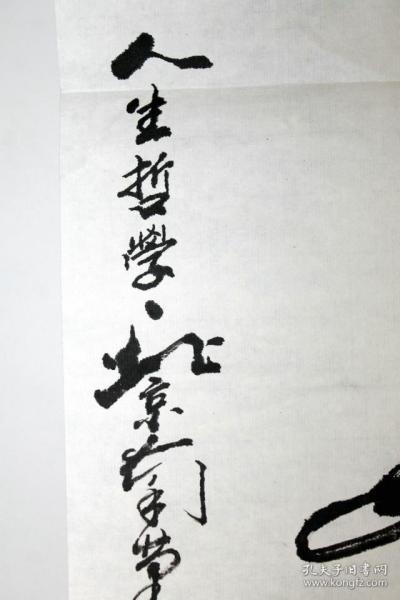 人生哲學、北京
孔夫子旧书网
www.kongfz.com